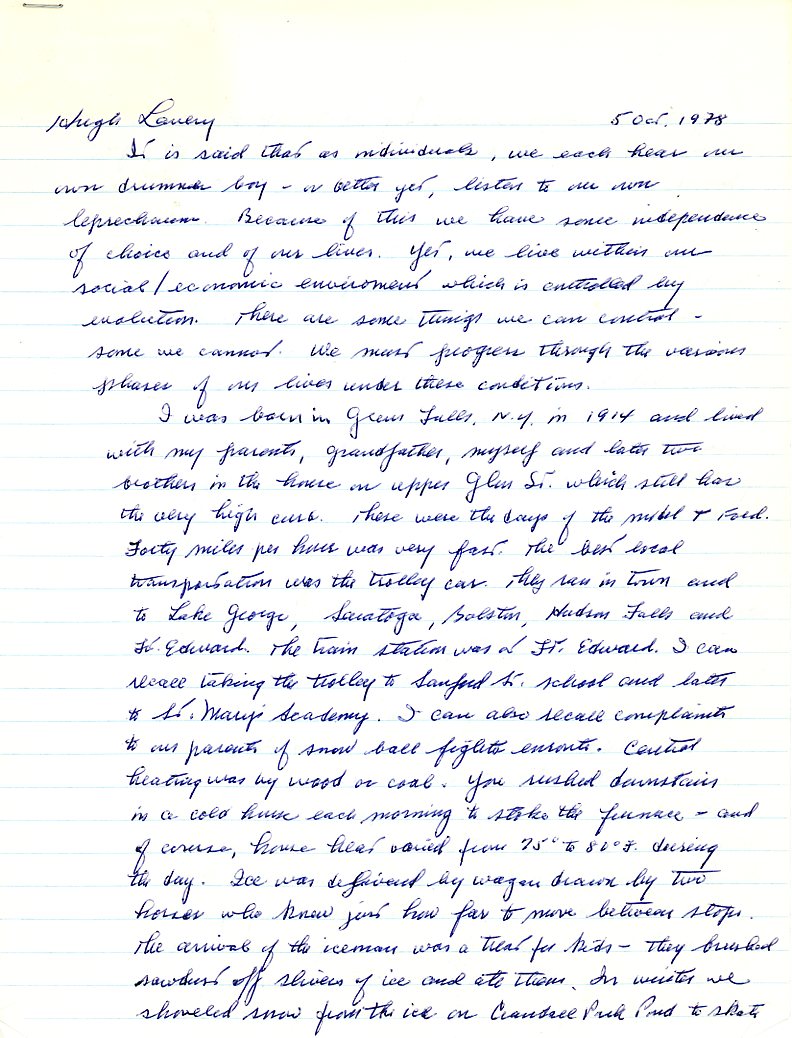 Hugh Lavery 5 Oct. 1978
It is said that as individuals, we each hear our
own drummer boy - or better yet, listen to our own
leprechaun. Because of this we have some independence
of choice and of our lives. Yet, we live within our
social/economic enviroment which is controlled by
evolution. There are some things we can control -
some we cannot. We must progress through the various
phases of our lives under these conditions.
I was born in Glens Falls, N.Y. in 1914 and lived
with my parents, grandfather, myself and later two
brothers in the house on upper Glen St. which still has
the very high curb. These were the days of the model T Ford.
Forty miles per hour was very fast. The best local
transportation was the trolley car. They ran in town and
to Lake George, Saratoga, Balston, Hudson Falls and
Ft. Edward. The train station was at Ft. Edward. I can
recall taking the trolley to Sanford St. school and later
to St. Mary's Academy. I can also recall complaints
to our parents of snow ball fights enroute. Central
heating was by wood or coal. You rushed downstairs
in a cold house each morning to stoke the furnace - and
of course, house heat varied from 75° to 80° F. during
the day. Ice was delivered by wagon drawn by two
horses who knew just how far to move between stops.
The arrival of the iceman was a treat for kids - they brushed
sawdust off slivers of ice and ate them. In winter we
shoveled snow from the ice on Crandall Park Pond to skate